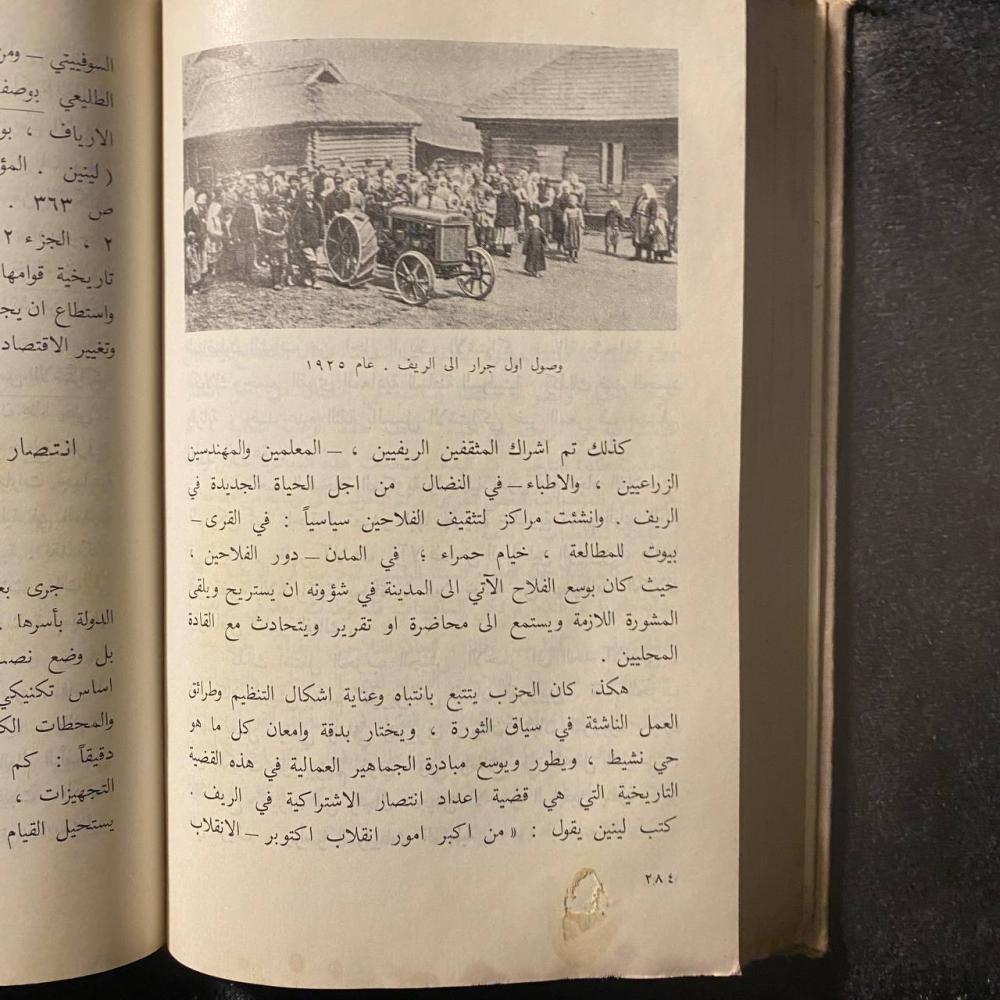 وصول اول جرار الى الريف . عام ١٩٢٥
كذلك تم اشراك المثقفين الريفيين ، — المعلمين والمهندسين
الزراعيين ، والاطباء — في النضال من اجل الحياة الجديدة في
الريف . وانشئت مراكز لتثقيف الفلاحين سياسياً : في القرى —
بيوت للمطالعة ، خيام حمراء ؛ في المدن — دور الفلاحين ،
حيث كان بوسع الفلاح الآتي الى المدينة في شؤونه ان يستريح ويلقى
المشورة اللازمة ويستمع الى محاضرة او تقرير ويتحادث مع القادة
المحليين .
هكذا كان الحزب يتتبع بانتباه وعناية اشكال التنظيم وطرائق
العمل الناشئة في سياق الثورة ، ويختار بدقة وامعان كل ما هو
حي نشيط ، ويطور ويوسع مبادرة الجماهير العمالية في هذه القضية
التاريخية التي هي قضية اعداد انتصار الاشتراكية في الريف .
كتب لينين يقول : « من اكبر امور انقلاب اكتوبر — الانقلاب
٢٨٤
السوفييتي — ومن
الطليعي بوصف
الارياف ، بو
( لينين . المؤ
ص ٣٦٣ .
٢ ، الجزء ٢
تاريخية قوامها
واستطاع ان يج
وتغيير الاقتصاد
انتصار
جرى بع
الدولة بأسرها .
بل وضع نصب
اساس تكنيكي
والمحطات الك
دقيقاً : كم
التجهيزات ،
يستحيل القيام